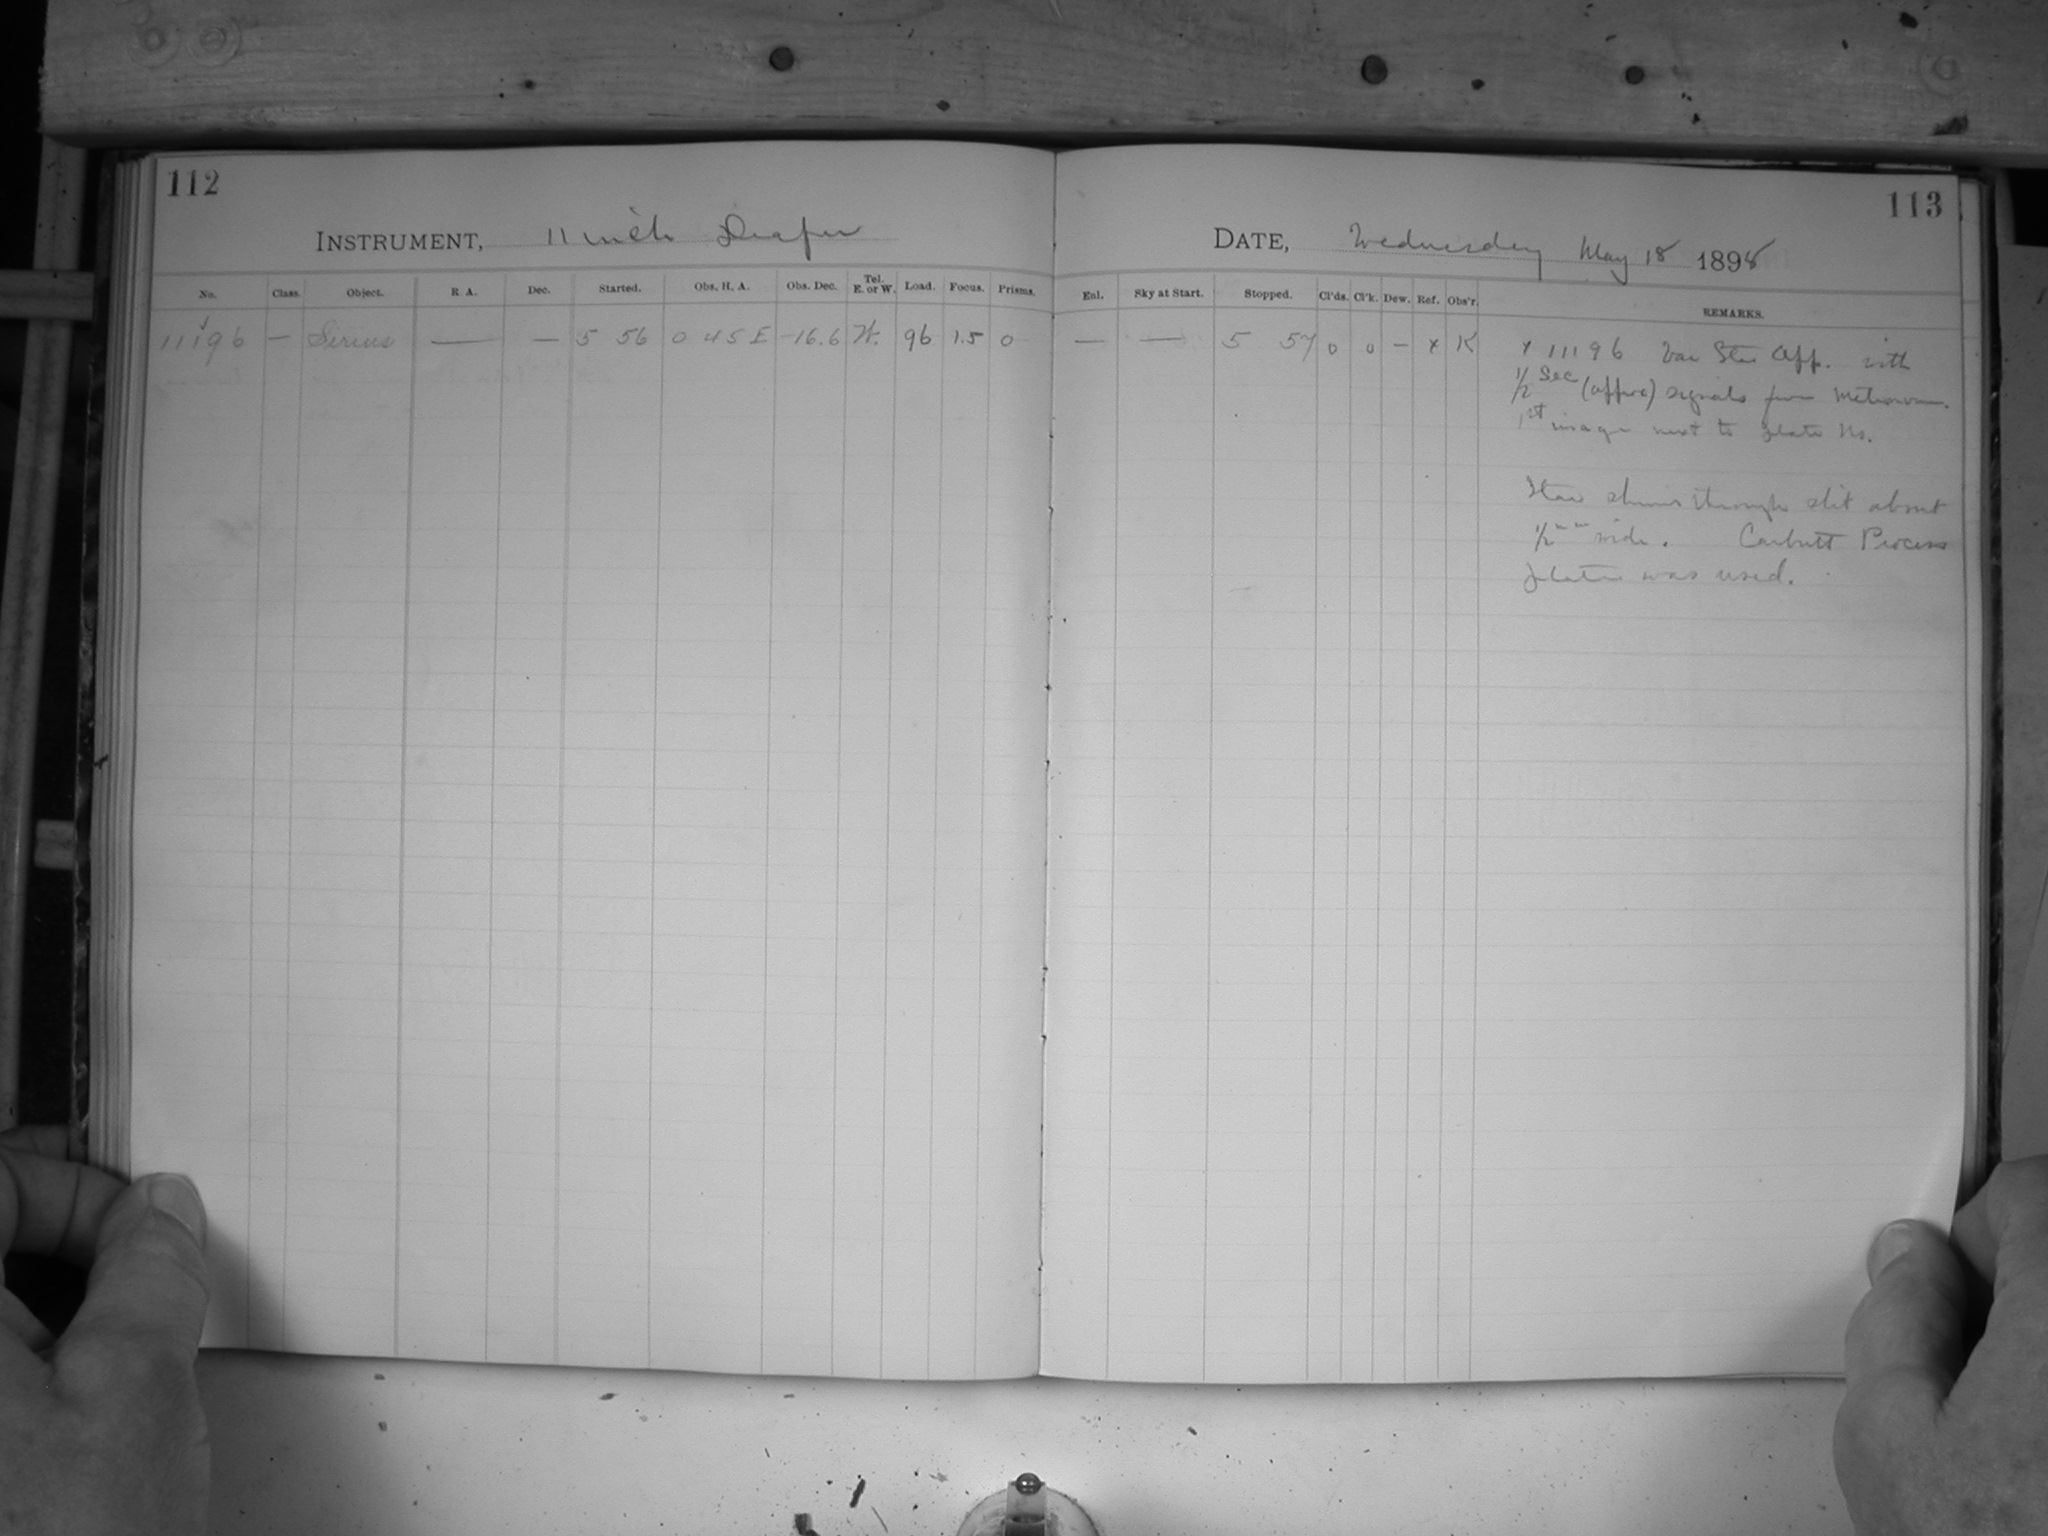 112
113
INSTRUMENT, 11 inch Draper
DATE, Wednesday May 18 1898
No. Class. Object. R. A. Dec. Started. Obs. H. A. Obs. Dec. Tel. E. or W. Load. Focus. Prisms. Enl. Sky at Start. Stopped. Cl'ds. Cl'k. Dew. Ref. Obs'r. REMARKS.
11196 — Sirius — — 5 56 0 45 E -16.6 W. 96 1.5 0 — — 5 57 0 0 — x K x 11196 Var Star App. with
1/2 Sec (approx) signals from Metronome.
1st image next to plate No.
Star shines through slit about
1/2 mm wide. Carbutt Process
plate was used.